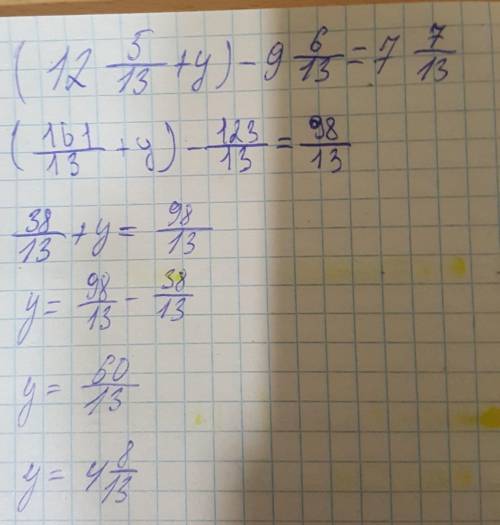 (12 5/13 + y) - 9 6/13 = 7 7/13
(161/13 + y) - 123/13 = 98/13
38/13 + y = 98/13
y = 98/13 - 38/13
y = 60/13
y = 4 8/13